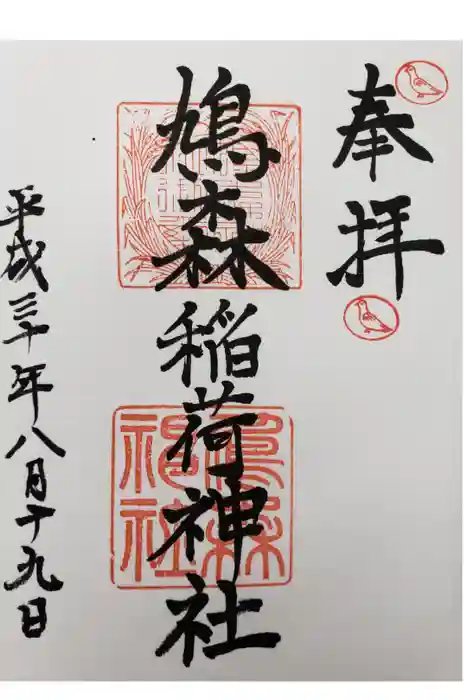 奉拝
鳩森稲荷神社
平成三十年八月十九日